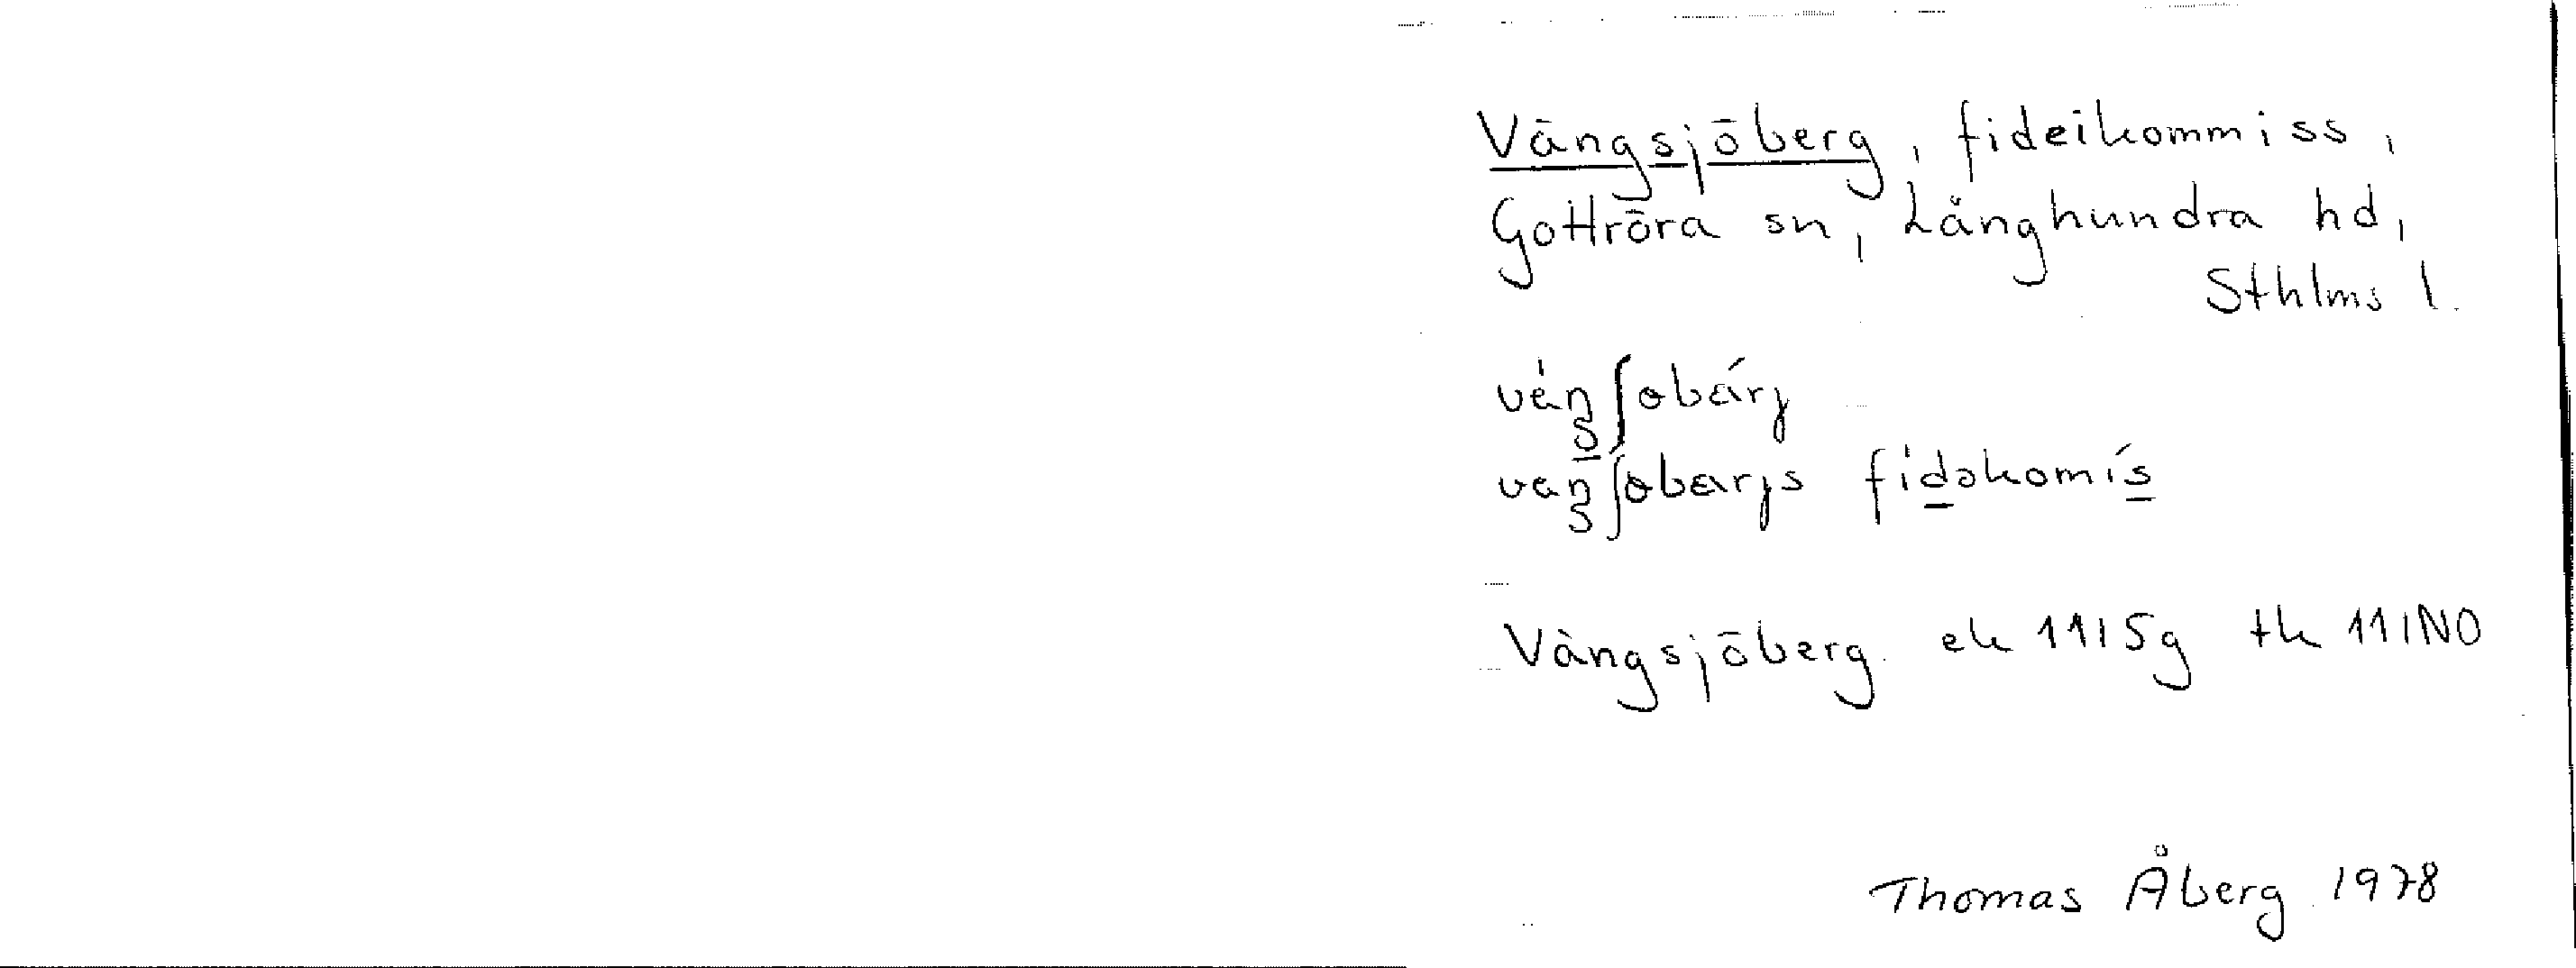 Vängsjöberg, fideikommiss,
Gottröra sn, Långhundra hd,
Sthlms l.
véŋʃobárj
veŋʃobarjs fidəkomís
Vängsjöberg ek 11I5g tk 11INO
Thomas Åberg 1978